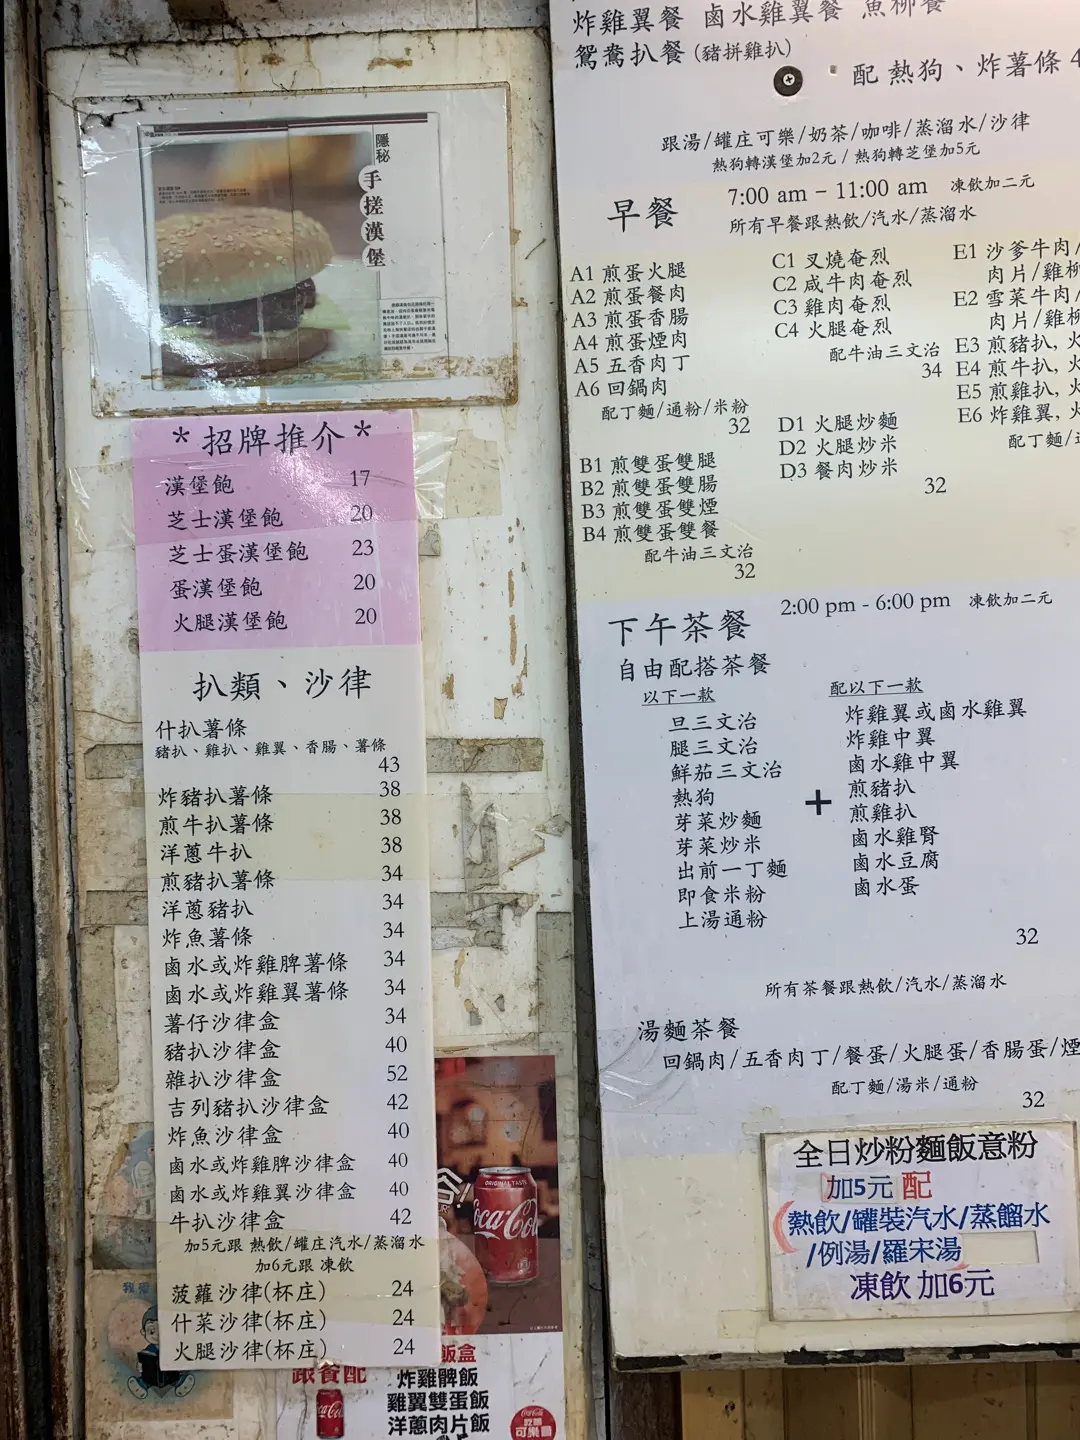 隱秘
手搓漢堡
*招牌推介*
漢堡飽 17
芝士漢堡飽 20
芝士蛋漢堡飽 23
蛋漢堡飽 20
火腿漢堡飽 20
扒類、沙律
什扒薯條
豬扒、雞扒、雞翼、香腸、薯條
43
炸豬扒薯條 38
煎牛扒薯條 38
洋蔥牛扒 38
煎豬扒薯條 34
洋蔥豬扒 34
炸魚薯條 34
鹵水或炸雞脾薯條 34
鹵水或炸雞翼薯條 34
薯仔沙律盒 34
豬扒沙律盒 40
雜扒沙律盒 52
吉列豬扒沙律盒 42
炸魚沙律盒 40
鹵水或炸雞脾沙律盒 40
鹵水或炸雞翼沙律盒 40
牛扒沙律盒 42
加5元跟 熱飲/罐庄汽水/蒸溜水
加6元跟 凍飲
菠蘿沙律(杯庄) 24
什菜沙律(杯庄) 24
火腿沙律(杯庄) 24
ORIGINAL TASTE
Coca-Cola
我愛
跟餐配
飯盒
炸雞髀飯
雞翼雙蛋飯
洋蔥肉片飯
可樂
炸雞翼餐 鹵水雞翼餐 魚柳餐
鴛鴦扒餐 (豬拼雞扒)
配 熱狗、炸薯條 4
跟湯/罐庄可樂/奶茶/咖啡/蒸溜水/沙律
熱狗轉漢堡加2元 / 熱狗轉芝堡加5元
早餐 7:00 am – 11:00 am 凍飲加二元
所有早餐跟熱飲/汽水/蒸溜水
A1 煎蛋火腿
A2 煎蛋餐肉
A3 煎蛋香腸
A4 煎蛋煙肉
A5 五香肉丁
A6 回鍋肉
配丁麵/通粉/米粉
32
B1 煎雙蛋雙腿
B2 煎雙蛋雙腸
B3 煎雙蛋雙煙
B4 煎雙蛋雙餐
配牛油三文治
32
C1 叉燒奄烈
C2 咸牛肉奄烈
C3 雞肉奄烈
C4 火腿奄烈
配牛油三文治
34
D1 火腿炒麵
D2 火腿炒米
D3 餐肉炒米
32
E1 沙爹牛肉/
肉片/雞柳
E2 雪菜牛肉/
肉片/雞柳
E3 煎豬扒, 火
E4 煎牛扒, 火
E5 煎雞扒, 火
E6 炸雞翼, 火
配丁麵/
下午茶餐 2:00 pm - 6:00 pm 凍飲加二元
自由配搭茶餐
以下一款
旦三文治
腿三文治
鮮茄三文治
熱狗
芽菜炒麵
芽菜炒米
出前一丁麵
即食米粉
上湯通粉
+
配以下一款
炸雞翼或鹵水雞翼
炸雞中翼
鹵水雞中翼
煎豬扒
煎雞扒
鹵水雞腎
鹵水豆腐
鹵水蛋
32
所有茶餐跟熱飲/汽水/蒸溜水
湯麵茶餐
回鍋肉/五香肉丁/餐蛋/火腿蛋/香腸蛋/煙
配丁麵/湯米/通粉
32
全日炒粉麵飯意粉
加5元 配
熱飲/罐裝汽水/蒸餾水
/例湯/羅宋湯
凍飲 加6元